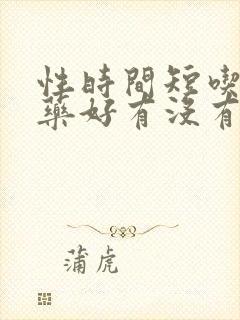 性時間短喫
藥好有沒有
蒲虎